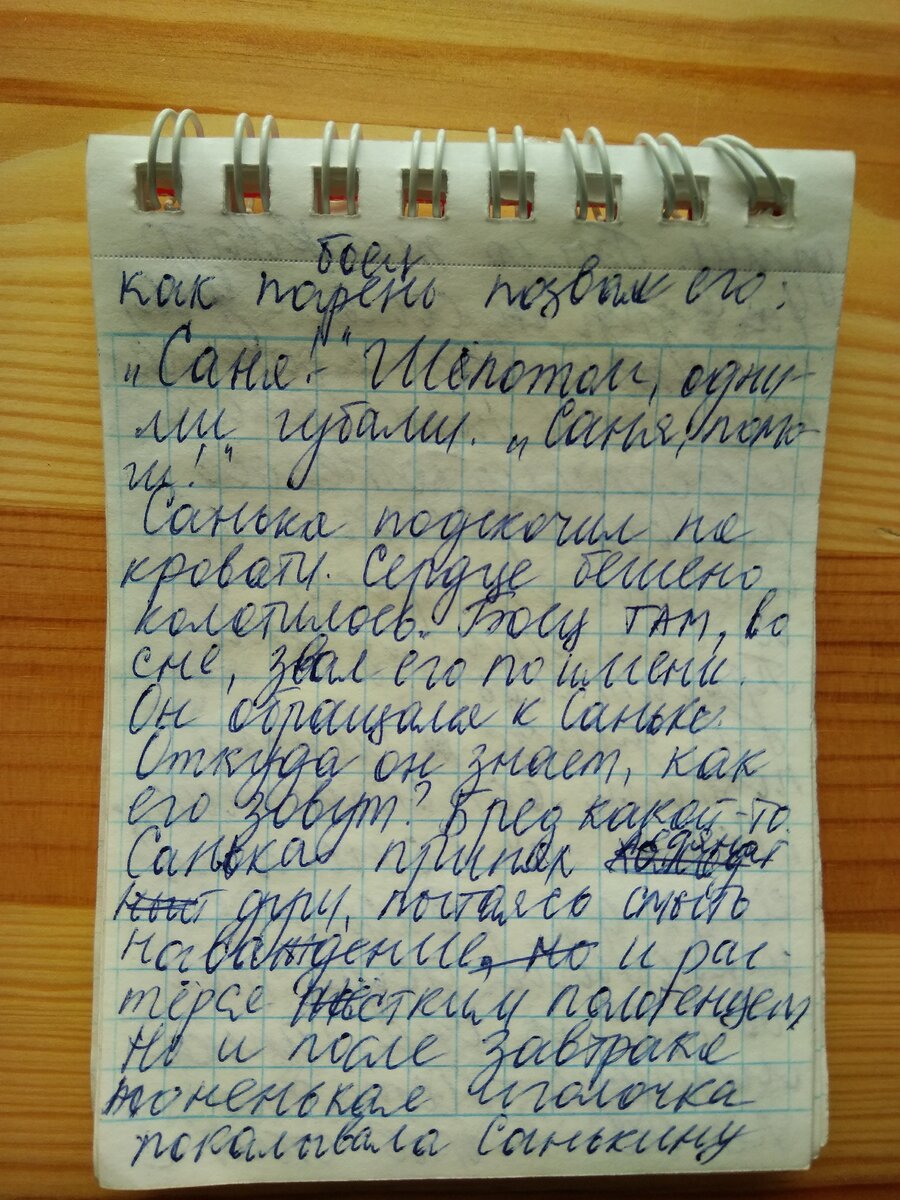 боец
как парень позвал его:
„Саня!“ Шёпотом, одни-
ми губами. „Саня, помо-
ги!“
Санька подскочил на
кровати. Сердце бешено
колотилось. Боец ТАМ, во
сне, звал его по имени.
Он обращался к Саньке.
Откуда он знает, как
его зовут? Бред какой-то.
Санька принял
душ, пытаясь смыть
наваждение, но и рас-
тёрся жёстким полотенцем,
Но и после завтрака
тоненькая иголочка
покалывала Санькину